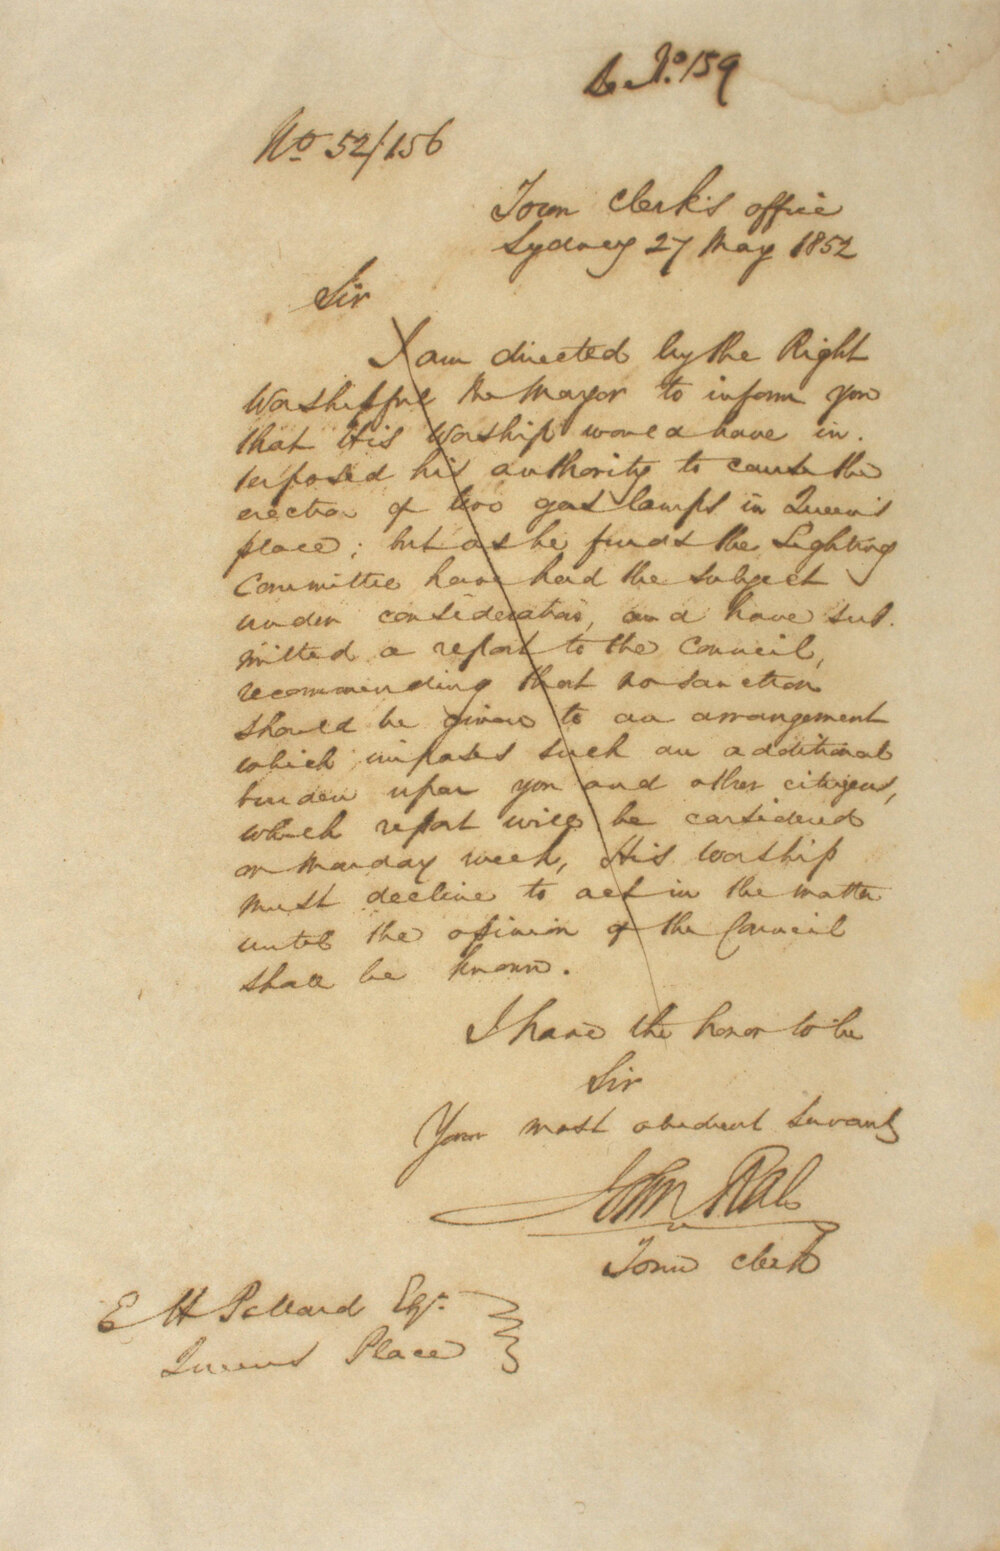 No. 159
No 52/156
Town Clerk's office
Sydney 27 May 1852
Sir
I am directed by the Right
Worshipful the Mayor to inform you
that His Worship would have in.
terposed his authority to cause the
erection of two gas lamps in Queen's
place; but as he finds the Lighting
Committee have had the subject
under consideration, and have sub.
mitted a report to the Council,
recommending that no sanction
should be given to an arrangement
which imposes such an additional
burden upon you and other citizens,
which report will be considered
on Monday week, His Worship
must decline to act in the matter
until the opinion of the Council
shall be known.
I have the honor to be
Sir
Your most obedient servant
John Rae
Town Clerk
E H Pollard Esqr.
Queens Place